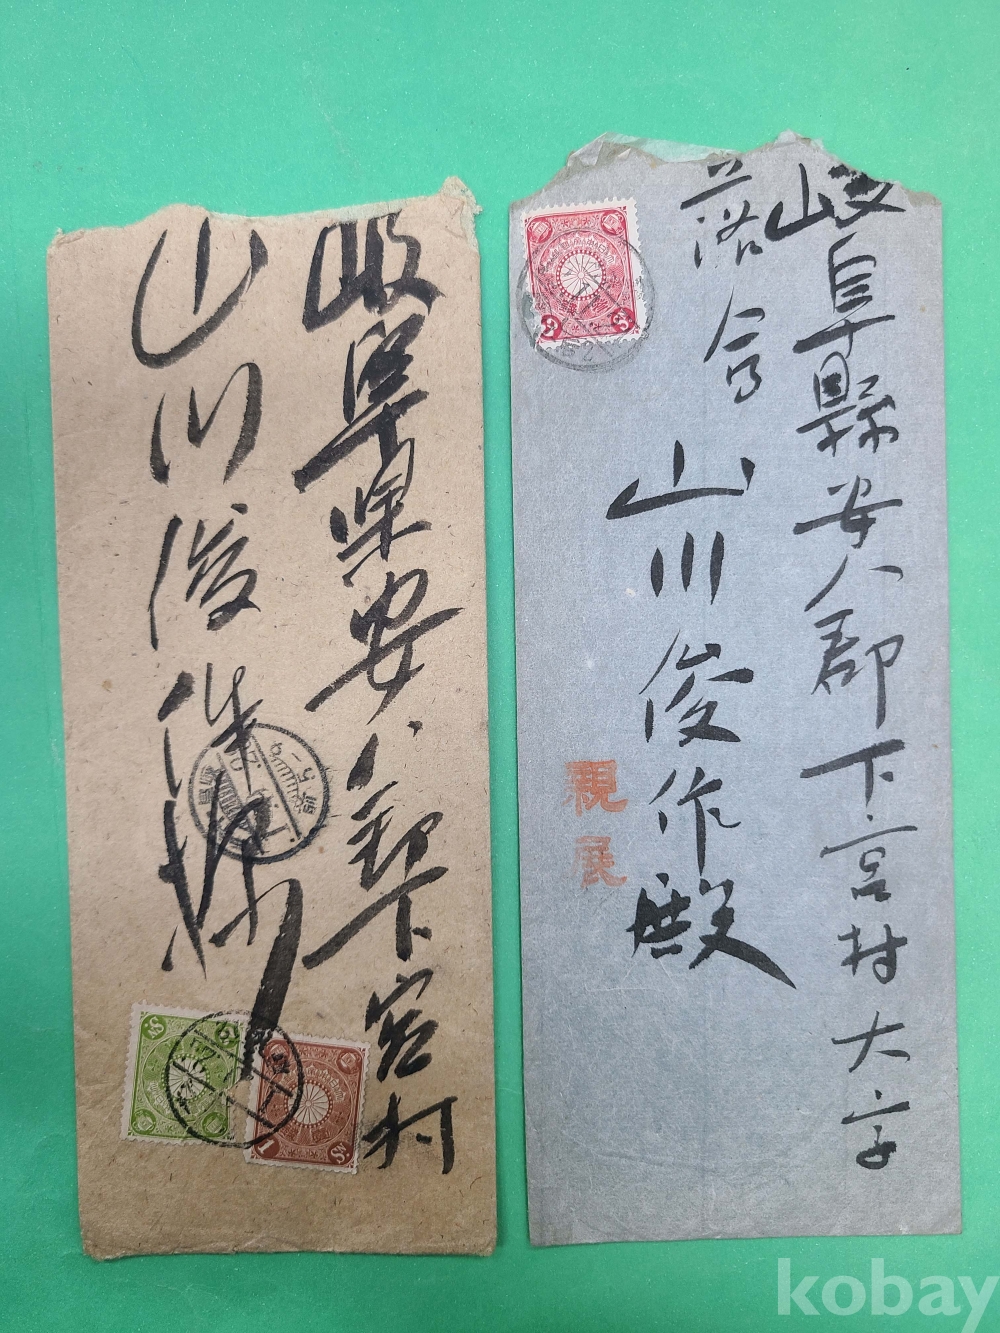 岐阜県安八郡下宮村
山川俊作様
1
岐阜縣安八郡下宮村大字
落合
山川俊作殿
親展
3
kobay